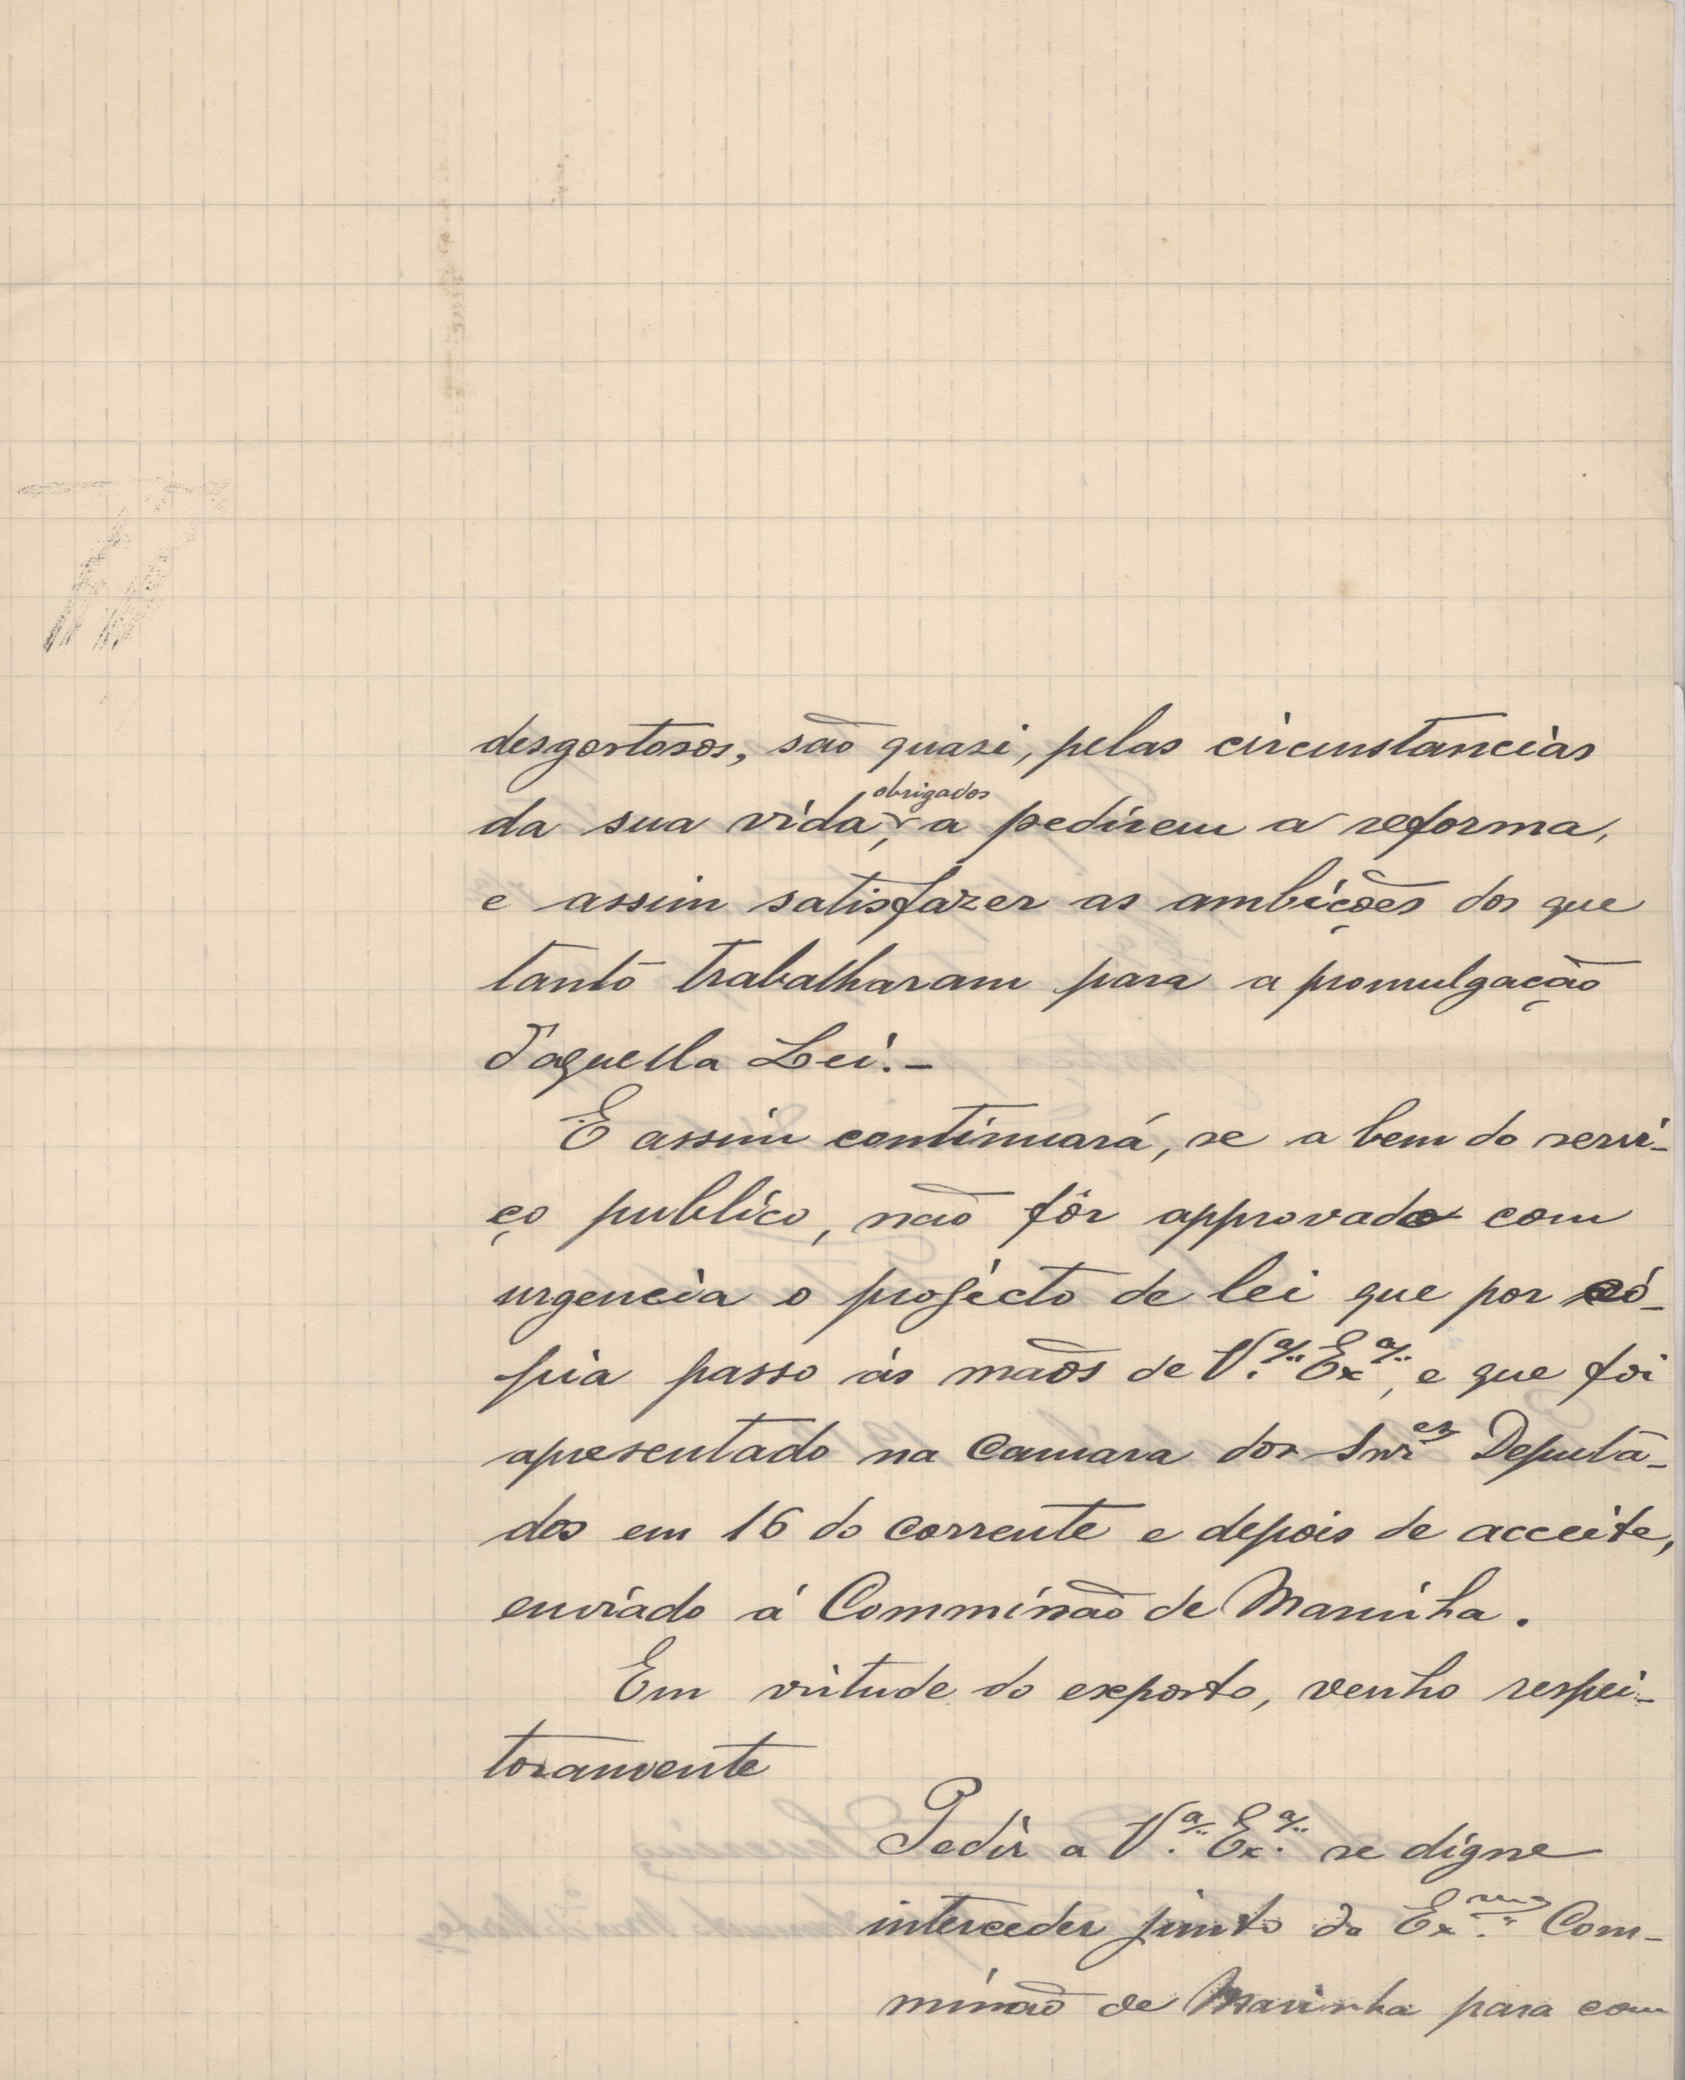 desgostosos, são quasi, pelas circunstancias
da sua vida, obrigados a pedirem a reforma,
e assim satisfazer as ambições dos que
tanto trabalharam para a promulgação
d'aquella Lei.-
E assim continuará, se a bem do servi-
ço publico, não fôr approvado com
urgencia o projécto de lei que por có-
pia passo ás mãos de V.ª Ex.ª, e que foi
apresentado na Camara dos Snr.es Deputa-
dos em 16 do corrente e depois de acceite,
enviado á Commissão de Marinha.
Em virtude do exposto, venho respei-
tosamente
Pedir a V.ª Ex.ª se digne
interceder junto da Ex.ma Com-
missão de Marinha para com